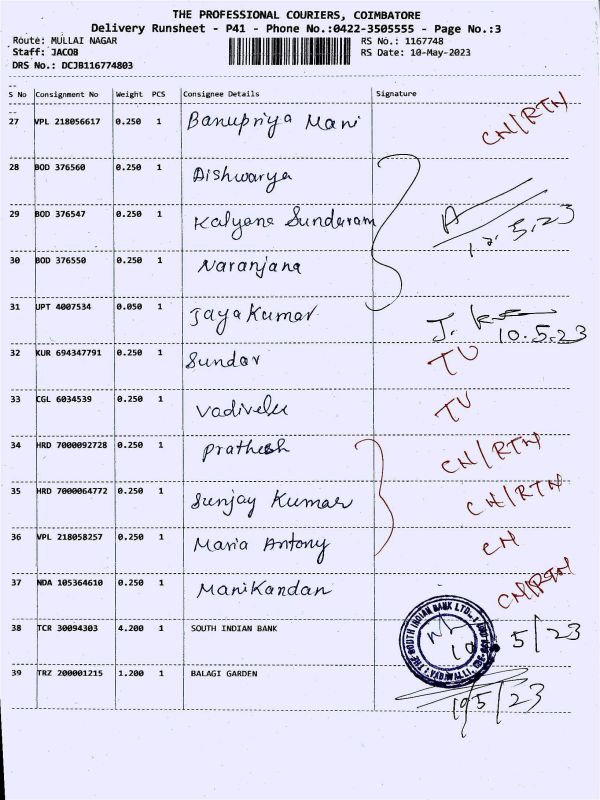 THE PROFESSIONAL COURIERS, COIMBATORE
Delivery Runsheet - P41 - Phone No.:0422-3505555 - Page No.:3
Route: MULLAI NAGAR RS No.: 1167748
Staff: JACOB RS Date: 10-May-2023
DRS No.: DCJB116774803
S No Consignment No Weight PCS Consignee Details Signature
27 VPL 218056617 0.250 1 Banupriya Mani CN/RTN
28 BOD 376560 0.250 1 Aishwarya
29 BOD 376547 0.250 1 Kalyana Sundaram
30 BOD 376550 0.250 1 Naranjana
31 UPT 4007534 0.050 1 Jayakumar 10.5.23
32 KUR 694347791 0.250 1 Sundar TU
33 CGL 6034539 0.250 1 Vadivelu TU
34 HRD 7000092728 0.250 1 Prathesh CN/RTN
35 HRD 7000064772 0.250 1 Sunjay Kumar CN/RTN
36 VPL 218058257 0.250 1 Maria Antony CN
37 NDA 105364610 0.250 1 Manikandan CN/RTN
38 TCR 30094303 4.200 1 SOUTH INDIAN BANK 10 5/23
39 TRZ 200001215 1.200 1 BALAGI GARDEN 10/5/23